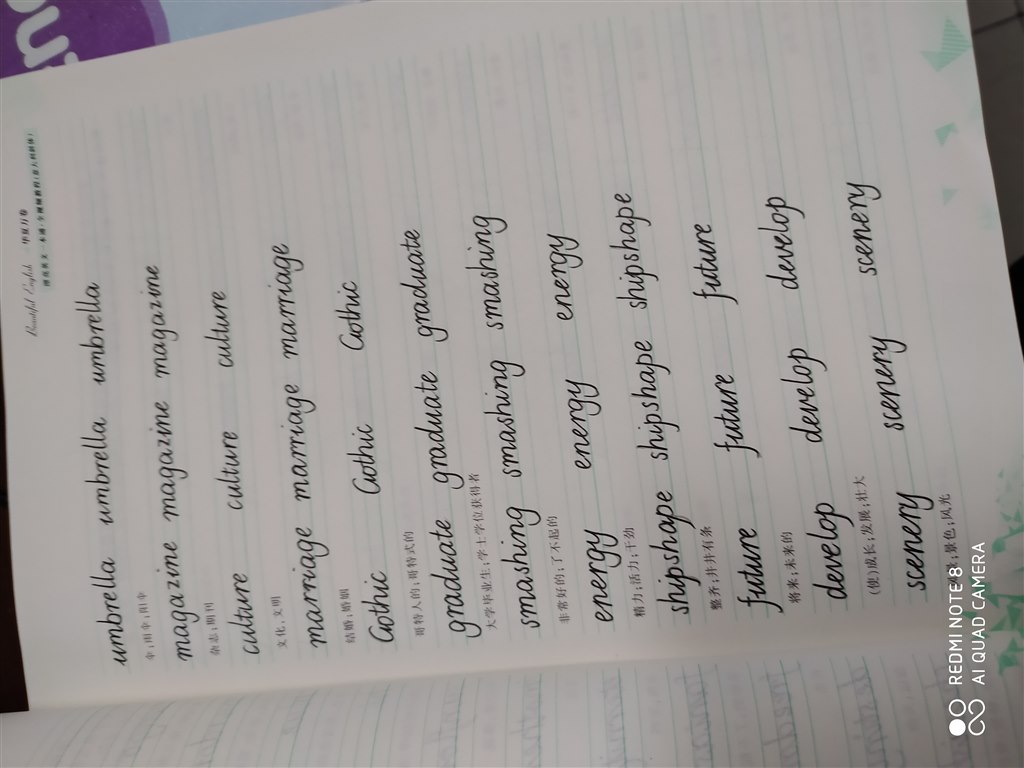 Beautiful English 华夏万卷
umbrella umbrella umbrella
伞;雨伞;阳伞
magazine magazine magazine
杂志;期刊
culture culture culture
文化,文明
marriage marriage marriage
结婚;婚姻
Gothic Gothic Gothic
哥特人的;哥特式的
graduate graduate graduate
大学毕业生;学士学位获得者
smashing smashing smashing
非常好的;了不起的
energy energy energy
精力;活力;干劲
shipshape shipshape shipshape
整齐;井井有条
future future future
将来;未来的
develop develop develop
(使)成长;发展;壮大
scenery scenery scenery
景色;风光
REDMI NOTE 8
AI QUAD CAMERA